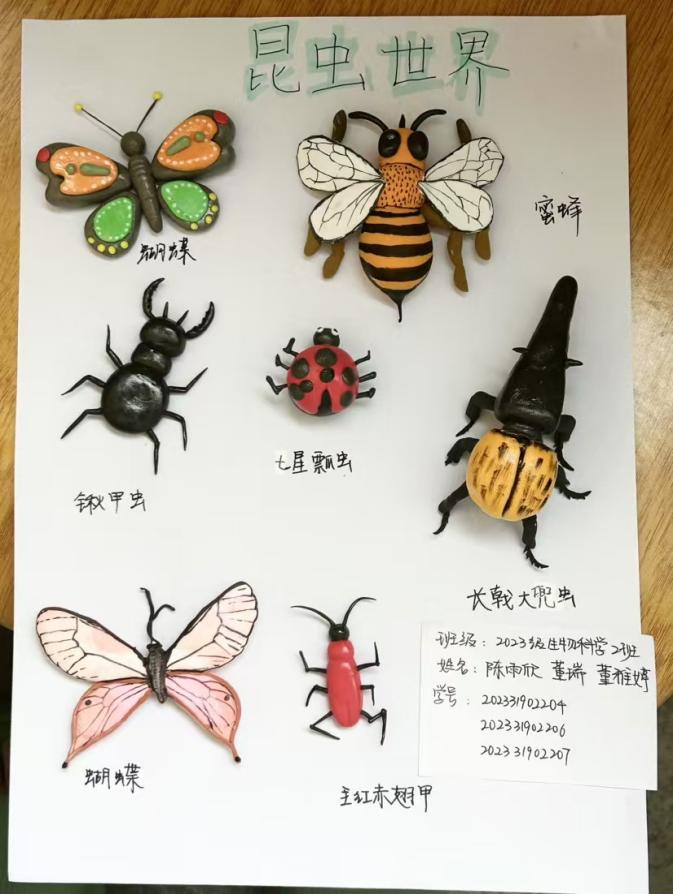 昆虫世界
蝴蝶
蜜蜂
锹甲虫
七星瓢虫
长戟大兜虫
蝴蝶
主红赤翅甲
班级：2023级生物科学2班
姓名：陈雨欣 董瑞 董雅婷
学号：202331902204
202331902206
202331902207